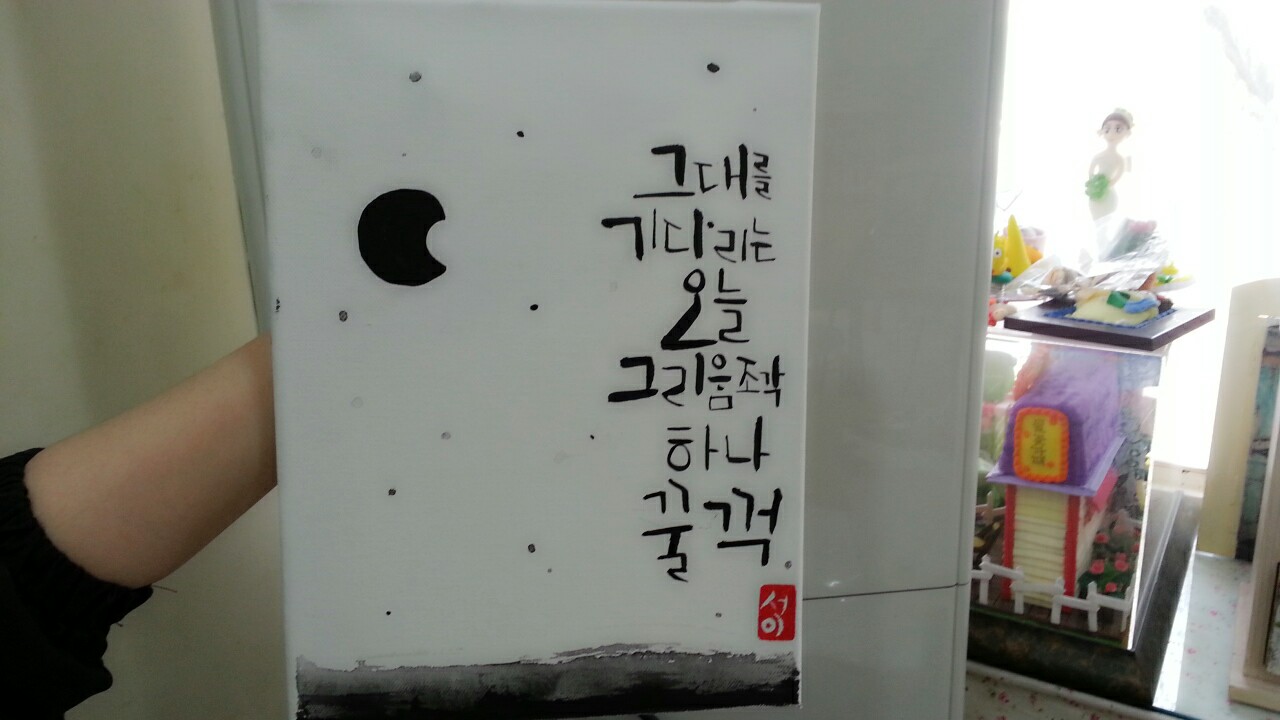 그대를
기다리는
오늘
그리움조각
하나
꿀꺽
서이